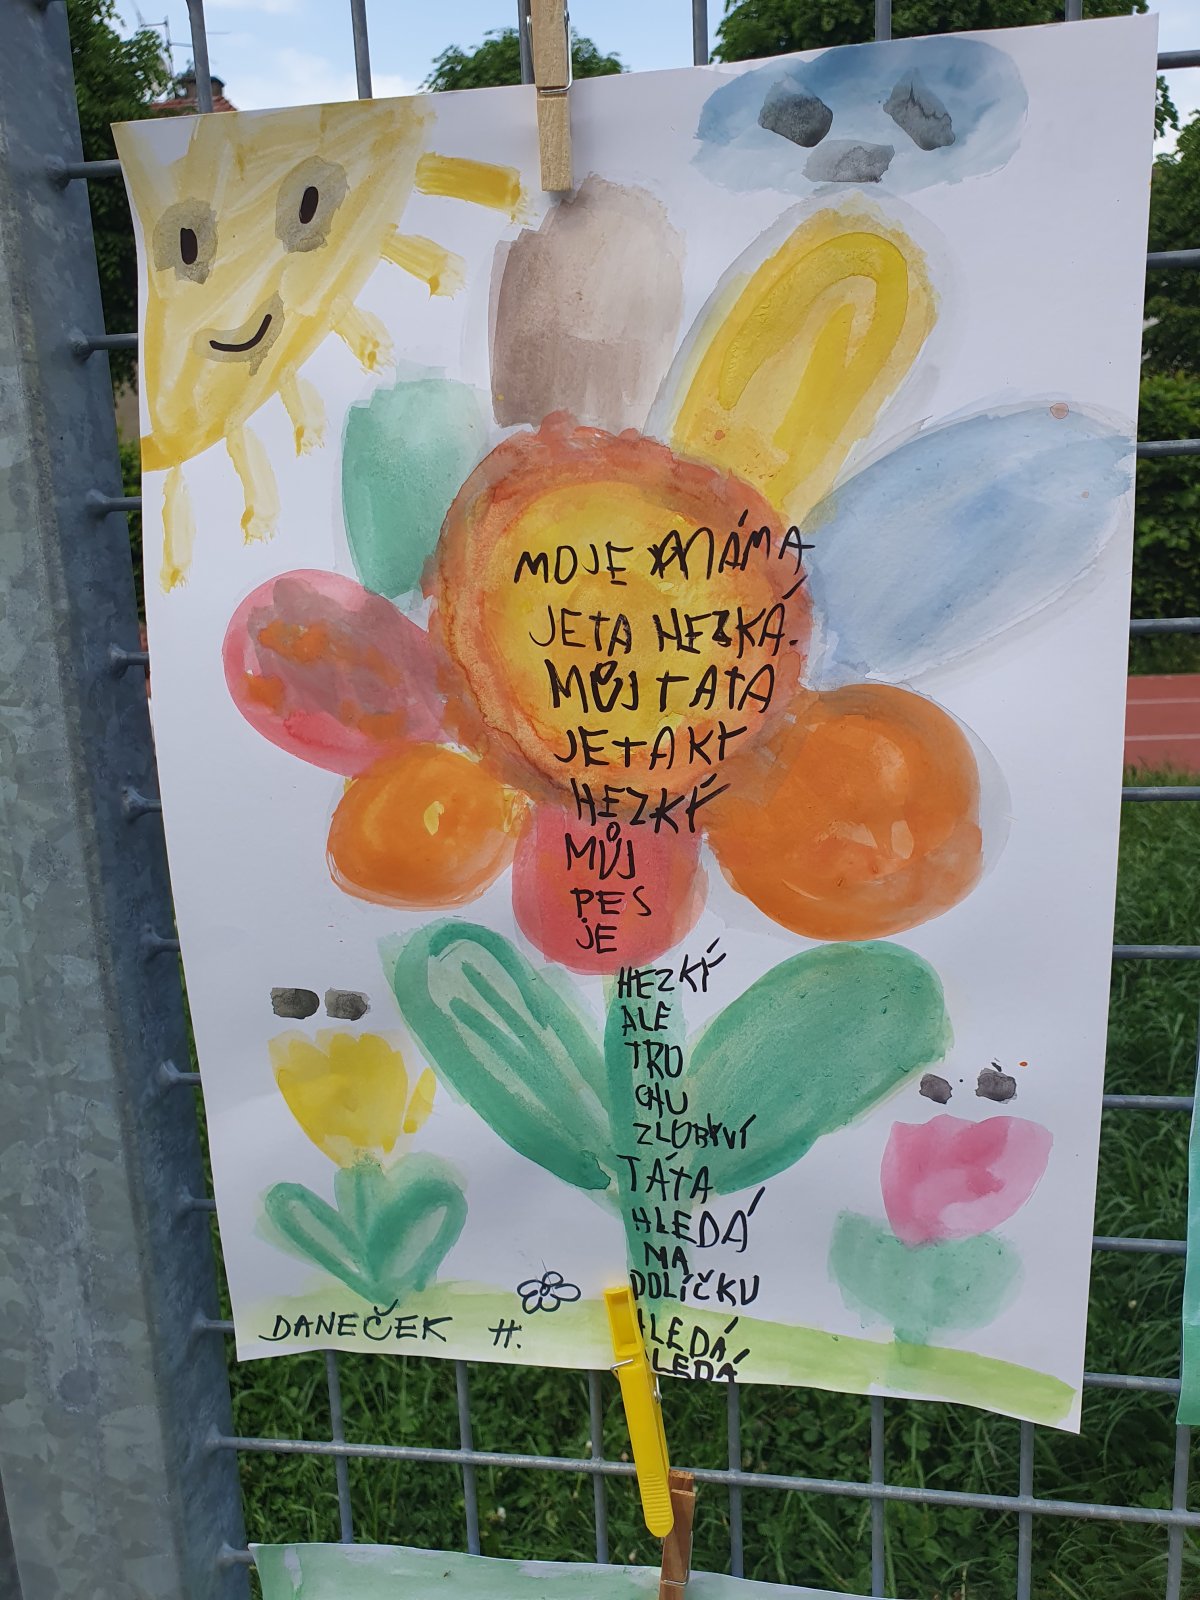 MOJE MÁMA
JETA HEZKÁ.
MŮJ TATA
JETAKY
HEZKÝ
MŮJ
PES
JE
HEZKÝ
ALE
TRO
CHU
ZLOBIVÍ
TÁTA
HLEDÁ
NA
DOLÍČKU
HLEDÁ
HLEDÁ
DANEČEK H.